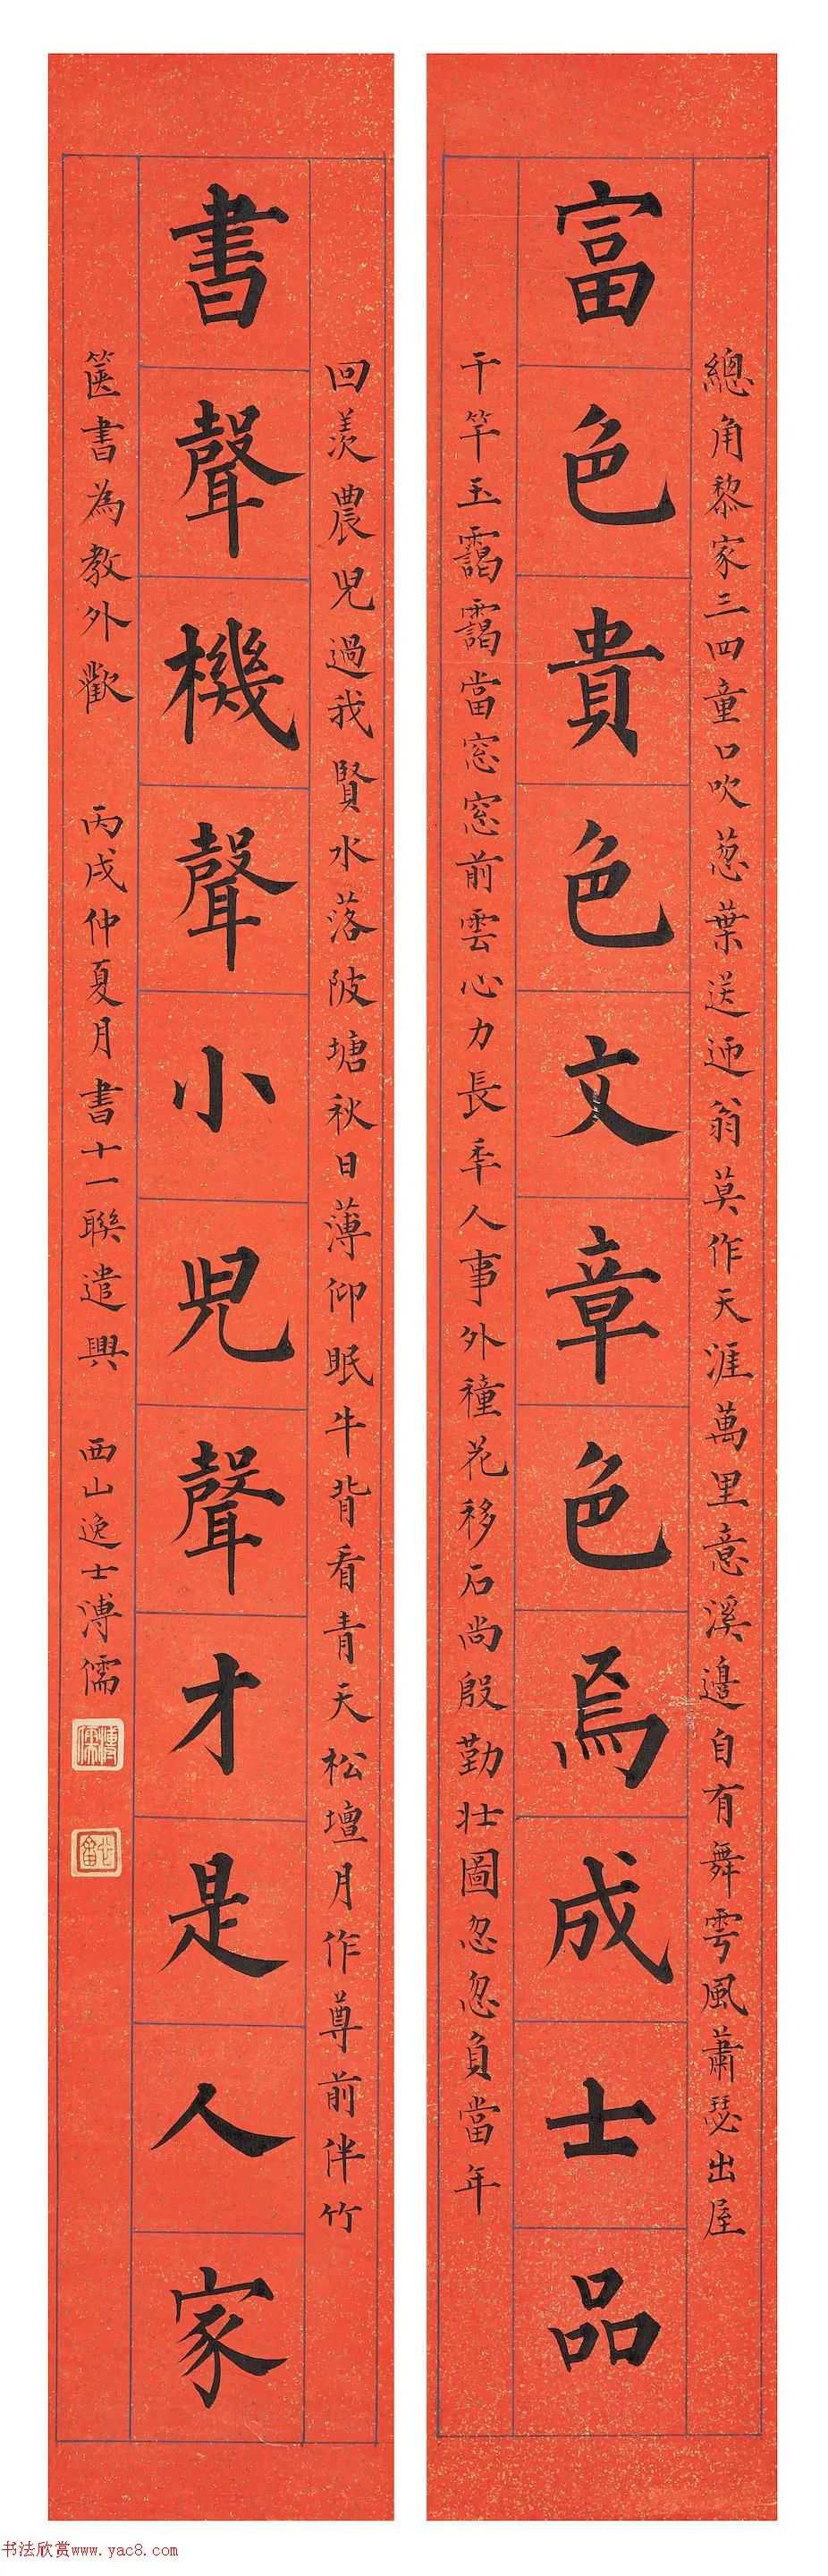 總角黎家三四童口吹葱葉送迎翁莫作天涯萬里意溪邊自有舞雩風蕭瑟出屋
富色貴色文章色焉成士品
千竿玉靄靄當窓窓前雲心力長年人事外種花移石尚殷勤壯圖忽忽負當年
回羨農兒過我賢水落陂塘秋日薄仰眠牛背看青天松壇月作尊前伴竹
書聲機聲小兒聲才是人家
篋書為教外歡 丙戌仲夏月書十一聯遣興 西山逸士溥儒
溥儒
书法欣赏www.yac8.com